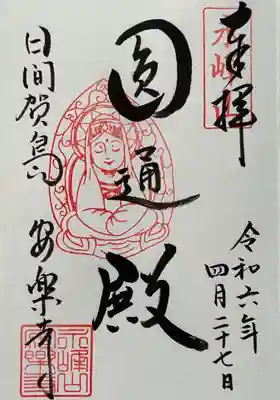 奉拝
令和六年
四月二十七日
圓通殿
日間賀島
安楽寺